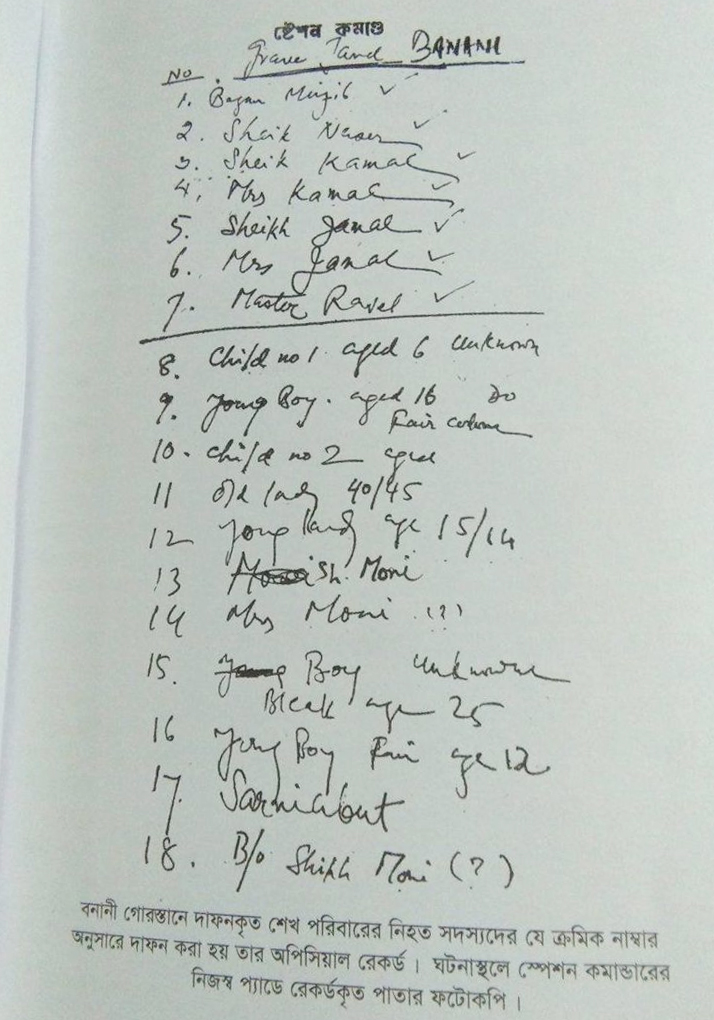 ষ্টেশন কমাণ্ড
Grave Yard BANANI
NO.
1. Begam Mujib ✓
2. Shaik Naser ✓
3. Sheik Kamal ✓
4. Mrs Kamal ✓
5. Sheikh Jamal ✓
6. Mrs Jamal ✓
7. Master Rasel ✓
8. Child no 1 aged 6 unknown
9. Young Boy. aged 16 Do
Fair
10. child no 2 aged
11 old lady 40/45
12 young age 15/14
13 Sh. Moni
14 Mrs Moni (?)
15. Boy unknown
Bleak age 25
16 Young Boy Fair age 12
17. Sarniabut
18. B/o Shikh Moni (?)
বনানী গোরস্তানে দাফনকৃত শেখ পরিবারের নিহত সদস্যদের যে ক্রমিক নাম্বার
অনুসারে দাফন করা হয় তার অপিসিয়াল রেকর্ড । ঘটনাস্থলে স্পেশন কমান্ডারের
নিজস্ব প্যাডে রেকর্ডকৃত পাতার ফটোকপি ।